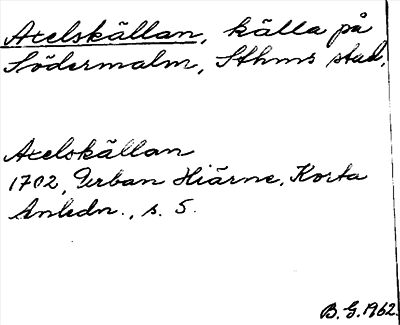 Axelskällan, källa på
Södermalm, Sthms stad.
Axelskällan
1702, Urban Hiärne, Korta
Anledn., s. 5.
B. G. 1962.